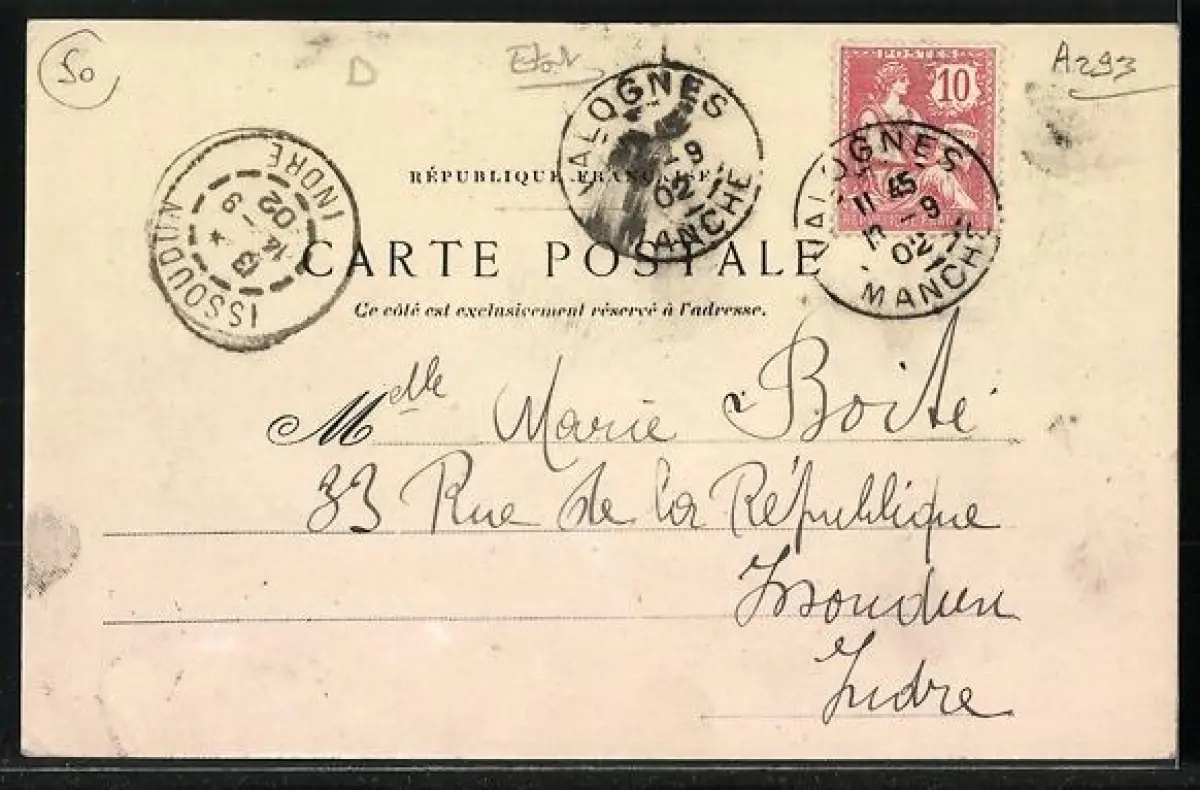 50
D
A293
POSTES
10
VALOGNES
-9
02
MANCHE
VALOGNES
11 45
-9
02
MANCHE
ISSOUDUN
INDRE
14
13
-9
02
RÉPUBLIQUE FRANÇAISE
CARTE POSTALE
Ce côté est exclusivement réservé à l'adresse.
Melle Marie Boité
33 Rue de la République
Issoudun
Indre